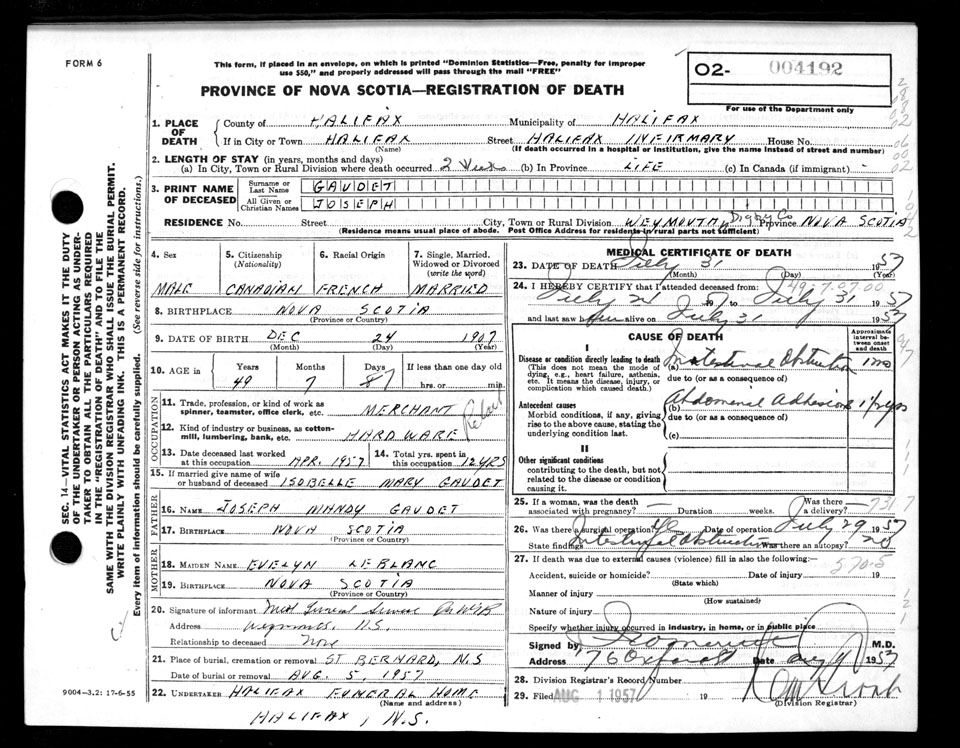 FORM 6
This form, if placed in an envelope, on which is printed "Dominion Statistics—Free, penalty for improper
use $50," and properly addressed will pass through the mail "FREE"
O2- 004192
For use of the Department only
PROVINCE OF NOVA SCOTIA—REGISTRATION OF DEATH
SEC. 14—VITAL STATISTICS ACT MAKES IT THE DUTY
OF THE UNDERTAKER OR PERSON ACTING AS UNDER-
TAKER TO OBTAIN ALL THE PARTICULARS REQUIRED
IN THE "REGISTRATION OF DEATH" AND TO FILE THE
SAME WITH THE DIVISION REGISTRAR WHO SHALL ISSUE THE BURIAL PERMIT.
WRITE PLAINLY WITH UNFADING INK. THIS IS A PERMANENT RECORD.
Every item of information should be carefully supplied. (See reverse side for instructions.)
1. PLACE OF DEATH
County of HALIFAX Municipality of HALIFAX
If in City or Town HALIFAX Street HALIFAX INFIRMARY House No.
(Name) (If death occurred in a hospital or institution, give the name instead of street and number)
2. LENGTH OF STAY (in years, months and days)
(a) In City, Town or Rural Division where death occurred 2 Weeks (b) In Province LIFE (c) In Canada (if immigrant)
3. PRINT NAME OF DECEASED
Surname or Last Name GAUDET
All Given or Christian Names JOSEPH
RESIDENCE No. Street City, Town or Rural Division WEYMOUTH Digby Co Province NOVA SCOTIA
(Residence means usual place of abode. Post Office Address for residents in rural parts not sufficient)
4. Sex
MALE
5. Citizenship
(Nationality)
CANADIAN
6. Racial Origin
FRENCH
7. Single, Married,
Widowed or Divorced
(write the word)
MARRIED
8. BIRTHPLACE NOVA SCOTIA
(Province or Country)
9. DATE OF BIRTH DEC 24 1907
(Month) (Day) (Year)
10. AGE in Years Months Days If less than one day old
49 7 8 hrs. or min.
OCCUPATION
11. Trade, profession, or kind of work as
spinner, teamster, office clerk, etc. MERCHANT
12. Kind of industry or business, as cotton-
mill, lumbering, bank, etc. HARDWARE
13. Date deceased last worked
at this occupation APR. 1957
14. Total yrs. spent in
this occupation 12 YRS
15. If married give name of wife
or husband of deceased ISOBELLE MARY GAUDET
FATHER
16. NAME JOSEPH MANDY GAUDET
17. BIRTHPLACE NOVA SCOTIA
(Province or Country)
MOTHER
18. MAIDEN NAME EVELYN LEBLANC
19. BIRTHPLACE NOVA SCOTIA
(Province or Country)
20. Signature of informant
Address Weymouth N.S.
Relationship to deceased None
21. Place of burial, cremation or removal ST BERNARD, N.S
Date of burial or removal AUG. 5, 1957
22. UNDERTAKER HALIFAX FUNERAL HOME
(Name and address)
HALIFAX, N.S.
9004—3.2: 17-6-55
MEDICAL CERTIFICATE OF DEATH
23. DATE OF DEATH July 31 1957
(Month) (Day) (Year)
24. I HEREBY CERTIFY that I attended deceased from:
July 21 1957 to July 31 1957
and last saw him alive on July 31 1957
CAUSE OF DEATH
Approximate interval between onset and death
I
Disease or condition directly leading to death
(This does not mean the mode of
dying, e.g., heart failure, asthenia,
etc. It means the disease, injury, or
complication which caused death.)
(a) Intestinal Obstruction 1 mo
due to (or as a consequence of)
Antecedent causes
Morbid conditions, if any, giving
rise to the above cause, stating the
underlying condition last.
(b) Abdominal Adhesions
due to (or as a consequence of)
(c)
II
Other significant conditions
contributing to the death, but not
related to the disease or condition
causing it.
25. If a woman, was the death
associated with pregnancy? — Duration weeks. Was there a delivery? —
26. Was there a surgical operation? Yes Date of operation July 29 1957
State findings Intestinal Obstruction Was there an autopsy? no
27. If death was due to external causes (violence) fill in also the following:
570-5
Accident, suicide or homicide? Date of injury 19
(State which)
Manner of injury
(How sustained)
Nature of injury
Specify whether injury occurred in industry, in home, or in public place
Signed by M.D.
Address 76 Oxford St Date Aug 1957
28. Division Registrar's Record Number
29. Filed AUG 1 1957 19
(Division Registrar)